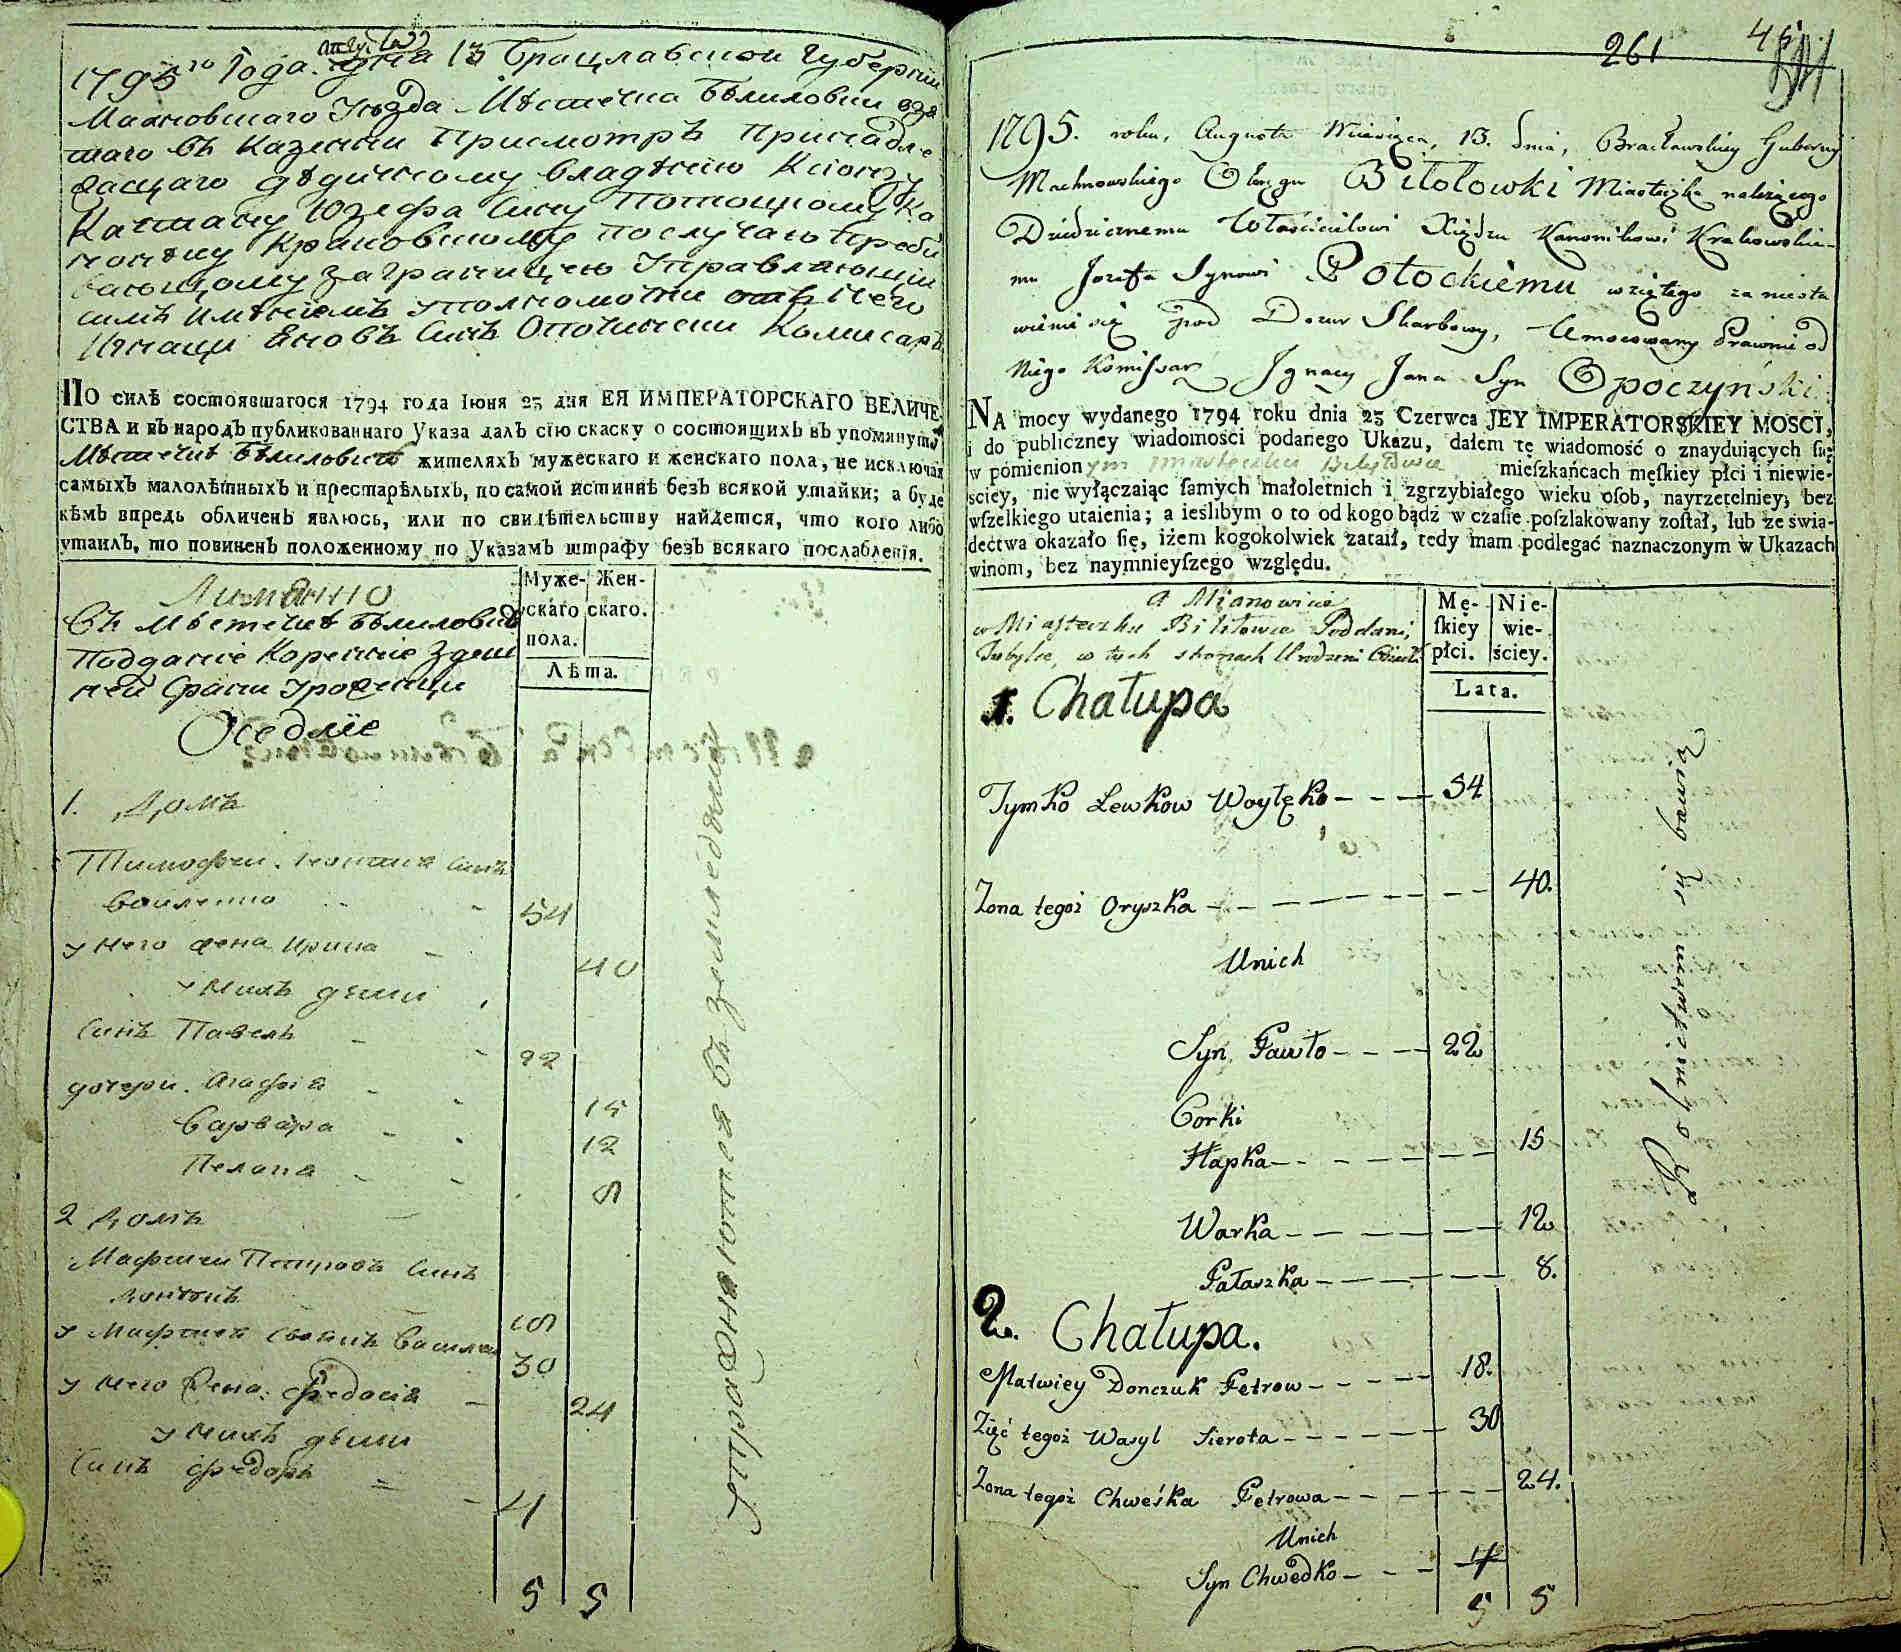 августа
1795го Года. дня 13 Брацлавской Губернии
Махновскаго Уѣзда Мѣстечка Бѣлиловки взя
таго въ Казенни Присмотръ Принадле
жащаго дѣдичному владѣнію Ксіондзу
Юзефа Сину Потоцкому Ка
нонѣку Краковскому по случаю Преби
вающому Заграницею Управляющи
симъ имѣніемъ Уполномочни отъ Него
Игнаци Яновъ Синъ Опочински Комисаръ
ПО силѣ состоявшагося 1794 года Іюня 23 дня ЕЯ ИМПЕРАТОРСКАГО ВЕЛИЧЕ-
СТВА и въ народъ публикованнаго Указа далъ сію скаску о состоящихъ въ упомянутѣ
Мѣстечкѣ Бѣлиловкѣ жителяхъ мужескаго и женскаго пола, не исключая
самыхъ малолѣтныхъ и престарѣлыхъ, по самой истиннѣ безъ всякой утайки; а буде
кѣмъ впредь обличенъ явлюсь, или по свидѣтельству найдется, что кого либо
утаилъ, то повиненъ положенному по Указамъ штрафу безъ всякаго послабленія.
Муже- Жен-
скаго скаго.
пола.
Лѣта.
Имянно
Въ Мѣстечкѣ Бѣлиловкѣ
Подданіе Коренніе Здеш
ней Уроженци
Оседліе
1. Домъ
Тимофеи синъ
Воиленко 54
у него жена Ирина 40
у нихъ дети
Синъ Павелъ 22
дочери. Агафия 15
Варвара 12
Пелагия 8
2 Домъ
Матвеи Петровъ Синъ
18
у Матвея Василеи 30
у него жена Федосия 24
у нихъ дети
Синъ Федоръ 4
5 5
упражняются въ земледѣліи
261
1795. roku, Augusta Miesiąca, 13. dnia, Bracławskiey Gubernij
Machnowskiego Okręgu Biłołowki Miasteczka należącego
Dziedzicznemu Właścicielowi Xiędzu Kanonikowi Krakowskie-
mu Jozefa Synowi Potockiemu wziętego
się pod Dozor Skarbowy, Umocowany Prawnie od
Niego Komissarz Jgnacy Jana Syn Opoczyński
NA mocy wydanego 1794 roku dnia 23 Czerwca JEY IMPERATORSKIEY MOSCI,
i do publiczney wiadomości podanego Ukazu, dałem tę wiadomość o znayduiących się
w pomienionym miasteczku Biłyłowce mieſzkańcach męſkiey płci i niewie-
ściey, nie wyłączaiąc ſamych małoletnich i zgrzybiałego wieku oſob, nayrzetelniey, bez
wſzelkiego utaienia; a ieślibym o to od kogo bądź w czaſie poſzlakowany zoſtał, lub ze świa-
dectwa okazało ſię, iżem kogokolwiek zataił, tedy mam podlegać naznaczonym w Ukazach
winom, bez naymnieyſzego względu.
Mę- Nie-
ſkiey wie-
płci. ściey.
Lata.
a Mianowicie
w Miasteczku Biłiłowce Poddani,
w tych stronach Urodzeni Osiedli
1. Chałupa
Tymko Lewkow Woytęko 54
Zona tegoż Oryszka 40.
Unich
Syn Pawło 22
Corki
Hapka 15
Warka 12
Pałaszka 8.
2. Chałupa.
Matwiey Donczuk Petrow 18.
Zięć tegoż Wasyl Sierota 30
Zona tegoż Chweśka Petrowa 24.
Unich
Syn Chwedko 4
5 5
Rolnictwem się bawią